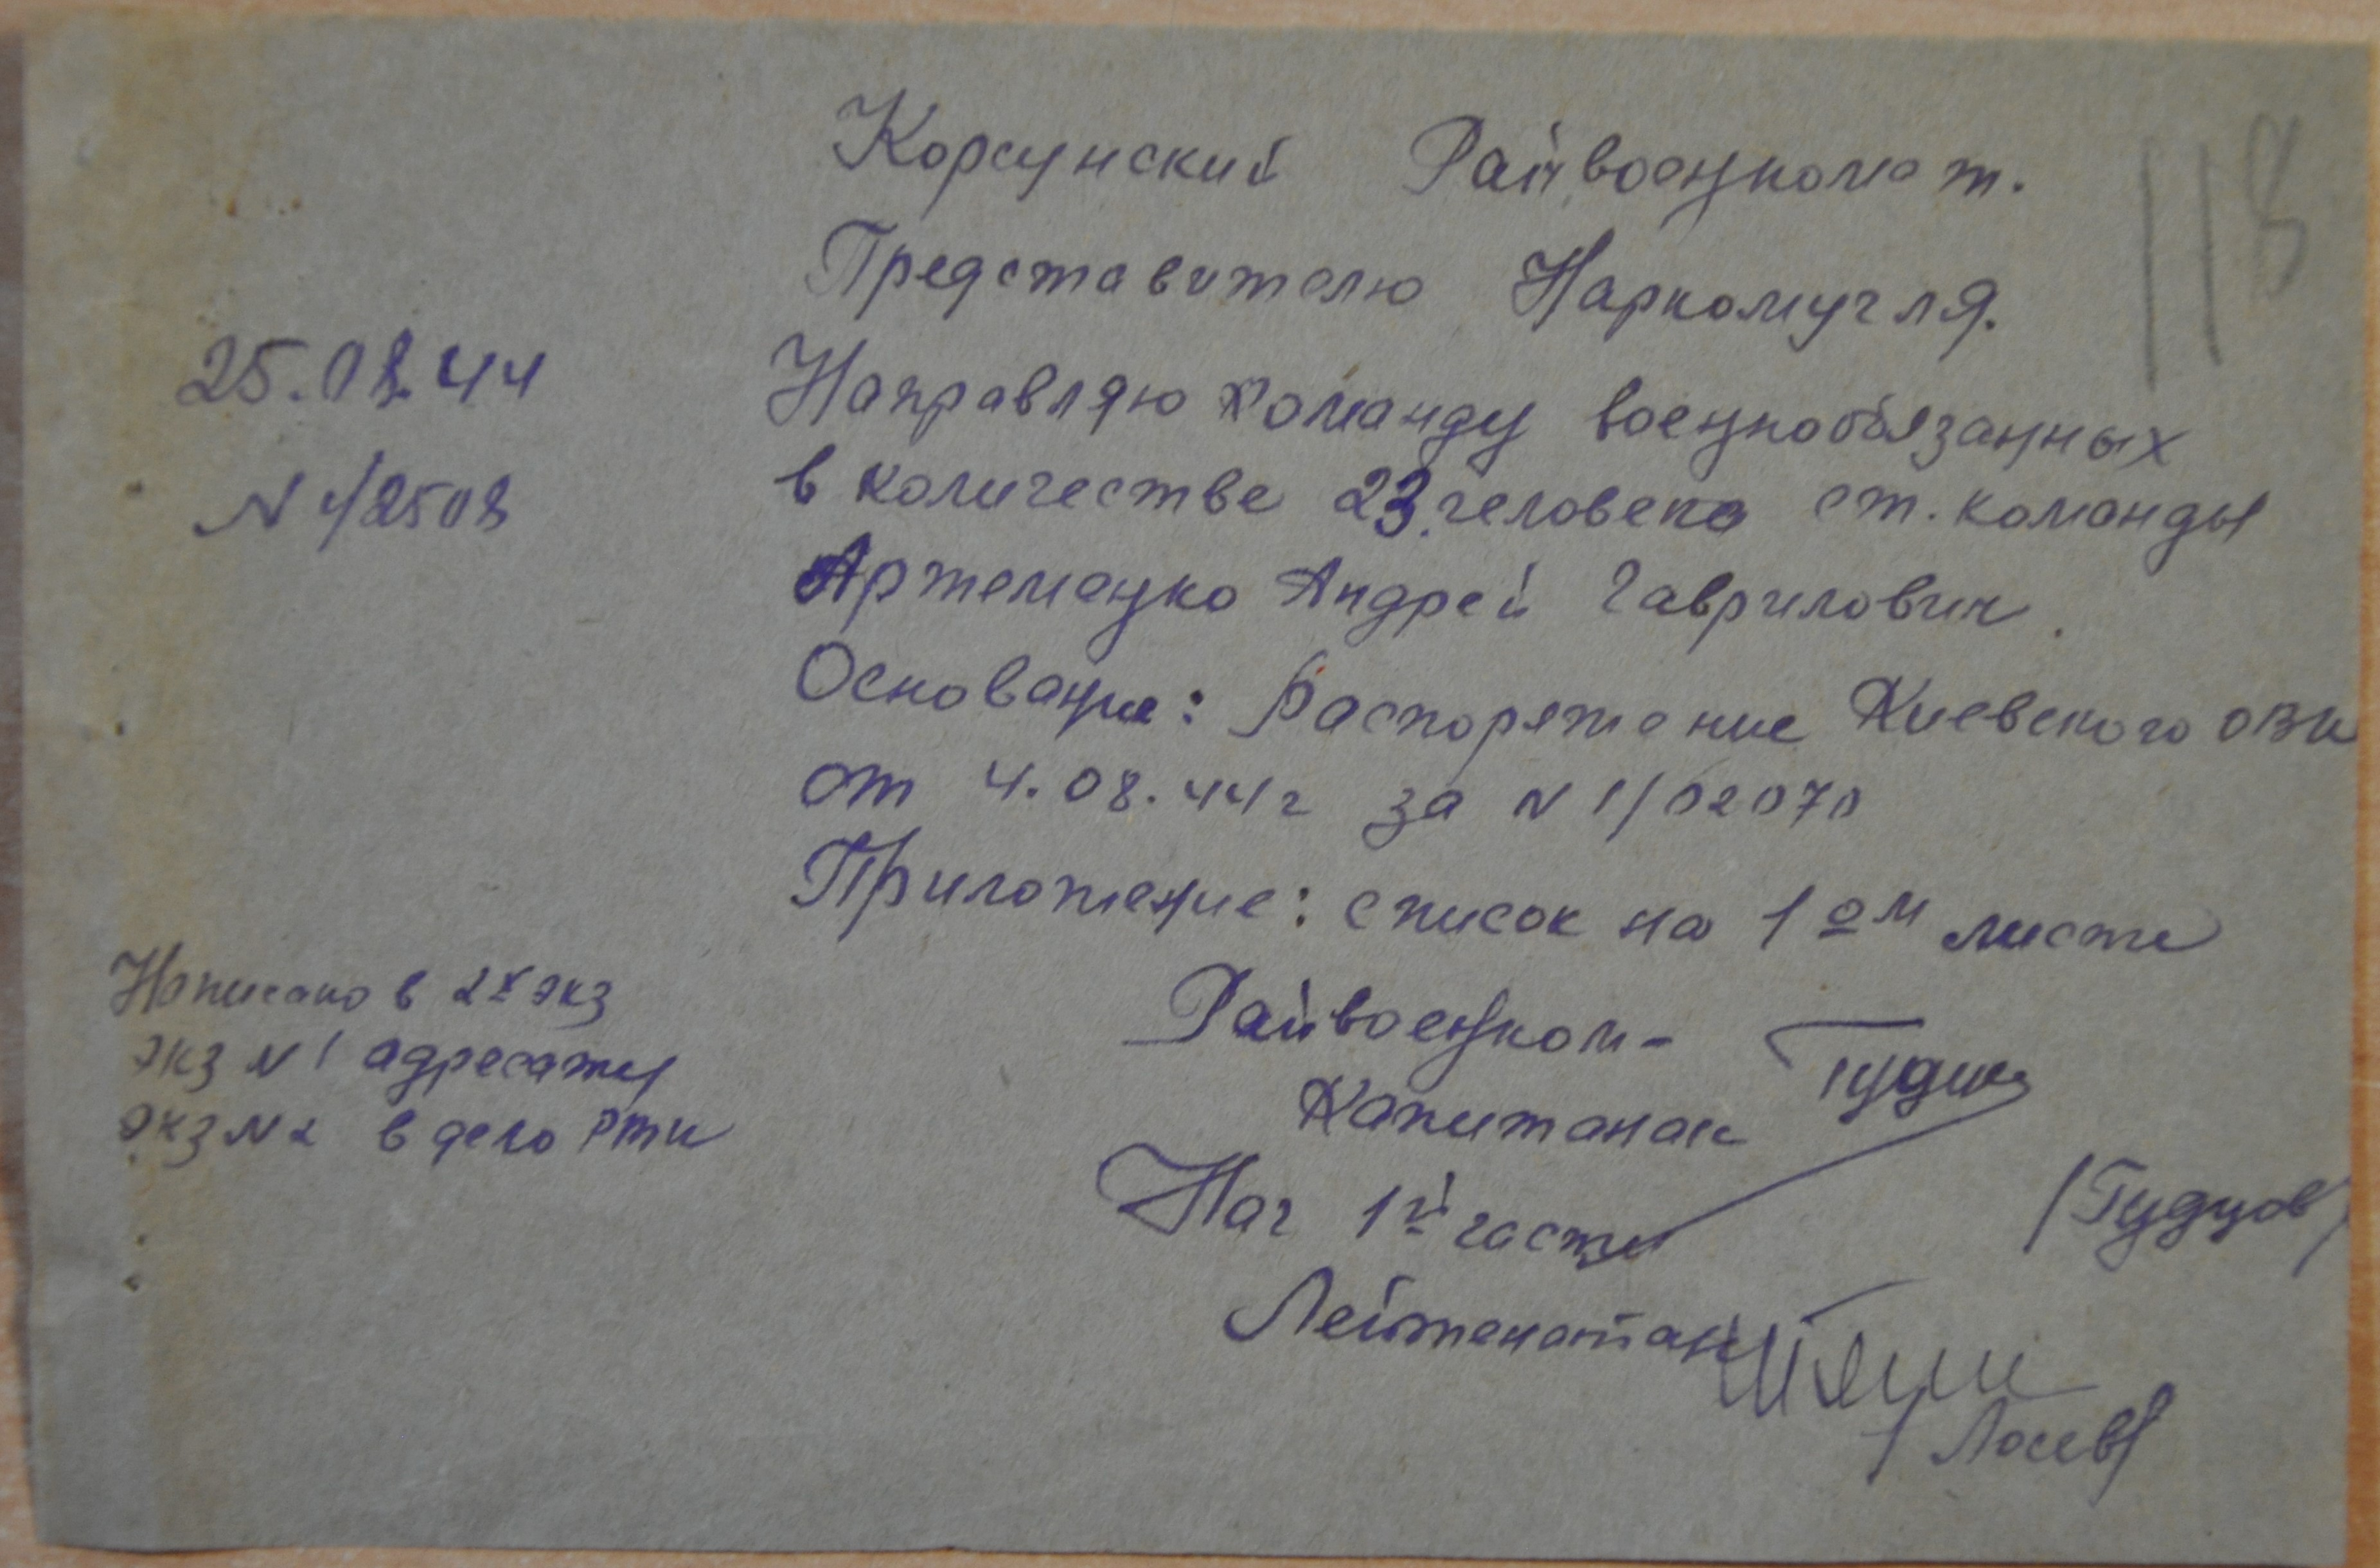 118
Корсунский Райвоенкомат.
Представителю Наркомугля.
25.08.44
Направляю команду военнообязанных
N 1/2508
в количестве 23 человека ст. команды
Артеменко Андрей Гаврилович.
Основание: Распоряжение Киевского ОВК
от 4.08.44г за N 1/02070
Приложение: список на 1ом листе
Написано в 2х экз
экз N 1 адресату
экз N 2 в дело РТК
Райвоенком-
Капитан
Нач 1й части
Лейтенант
/Лосев/